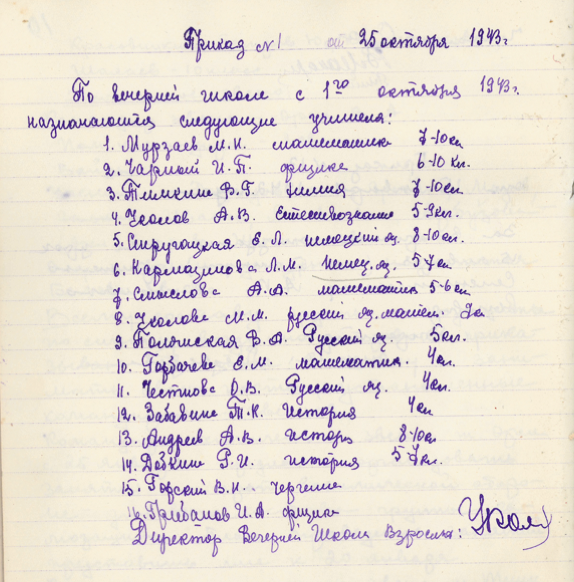 Приказ № 1 от 25 октября 1943 г.
По вечерней школе с 1го октября 1943 г.
назначаются следующие учителя:
1. Мурзаев М.К. математика 7-10 кл
2. Чарный И.П. физика 6-10 кл.
3. Тимкин В.Г. химия 7-10 кл.
4. Уколов А.В. Естествознание 5-9 кл.
5. Стругацкая Е.Л. немецкий яз. 8-10 кл.
6. Кармазинова Л.М. Немец. яз. 5-7 кл
7. Смыслова А.А. математик 5-6 кл
8. Уколова М.М. русский яз. матем. кл
9. Полянская В.А. Русский яз. 5 кл.
10. Горбачева Е.М. математик. 4 кл.
11. Честнова О.В. Русский яз. 4 кл.
12. Забавина Т.К. история 4 кл
13. Андреев А.В. истори 8-10 кл
14. Дабкин Р.И. история 5-7 кл.
15. Горский В.Н. черчение
16. Грибанов И.А. физика
Директор Вечерней Школы Взрослых: Уколов